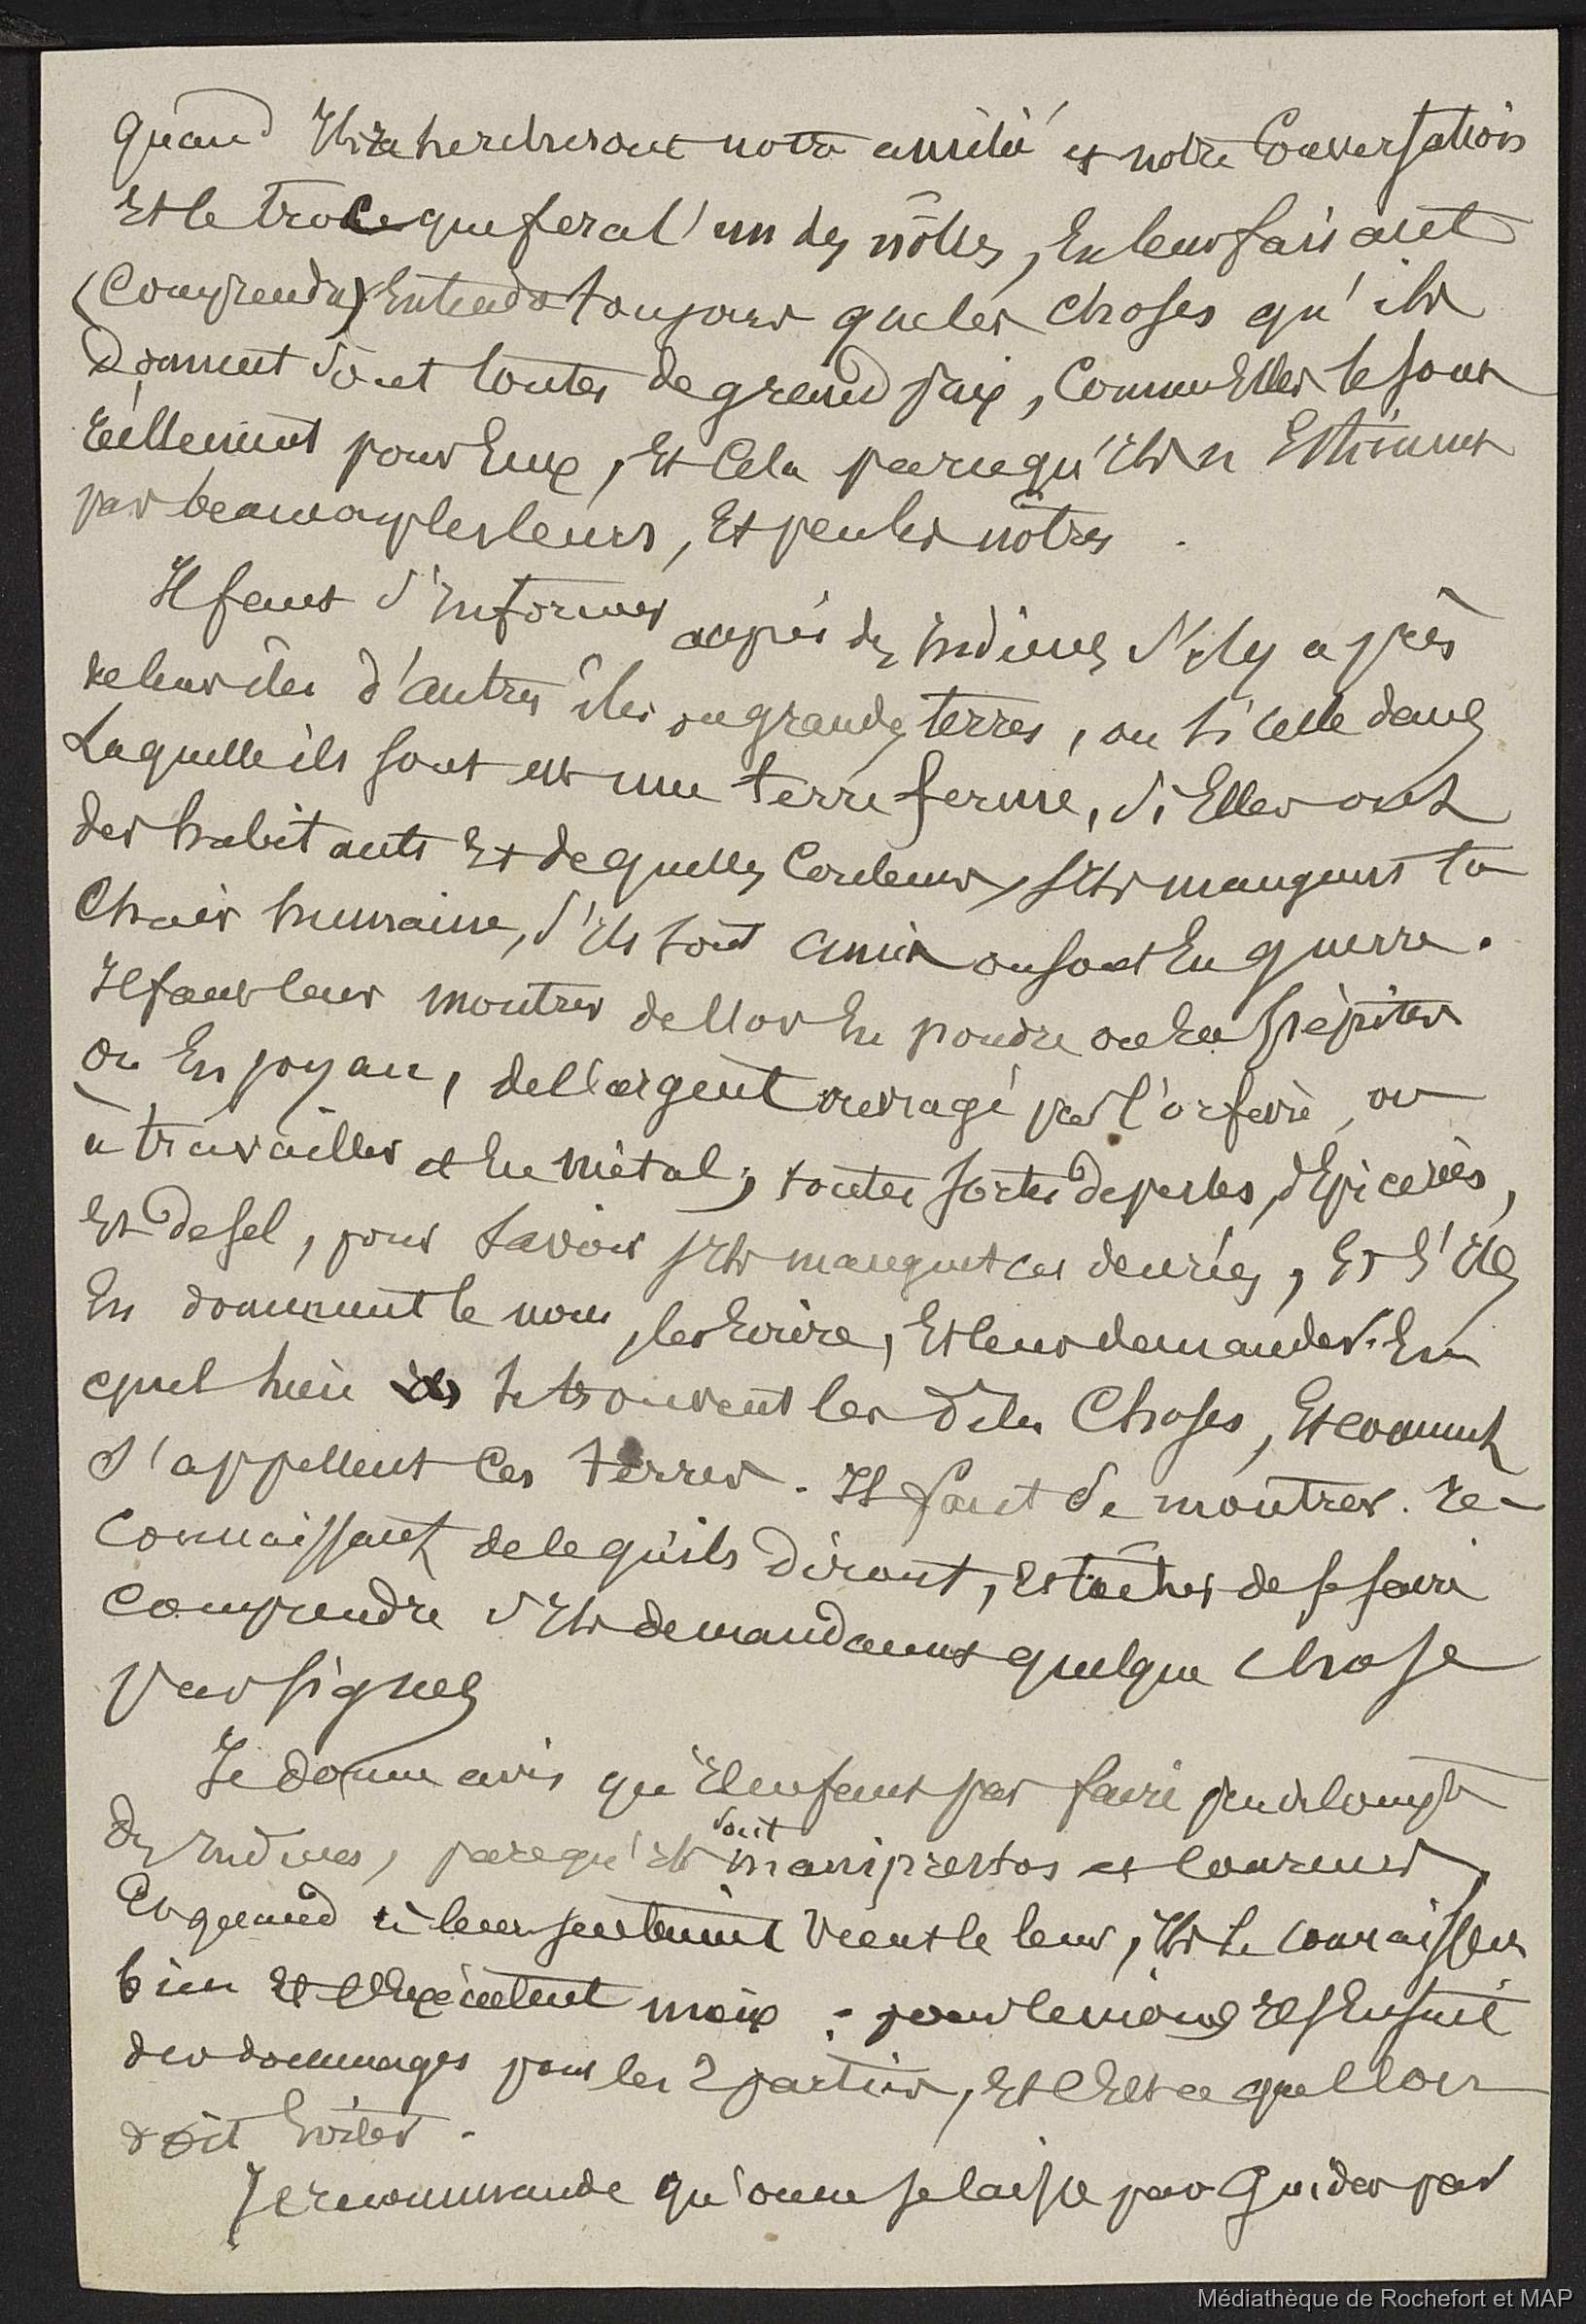 quand Ils rechercheront notre amitié et notre Conversation
Et le troc que fera l'un des nôtres, En leur faisant
(Comprendre) Entendre toujours que les choses qu'ils
donnent sont toutes de grand prix, Comme Elles le sont
réellement pour Eux, Et Cela parcequ'Ils n'Estiment
pas beaucoup les leurs, Et peu les nôtres.
Il faut s'Informer auprès des Indiens s'il y a près
de leur île d'autres îles ou grandes terres, ou si celle dans
Laquelle ils sont est une terre ferme, si Elles ont
des habitants Et de quelles Couleurs, s'Ils mangent la
Chair humaine, s'ils sont amis ou sont En guerre.
Il faut leur montrer de l'or En poudre ou En pépites
ou En joyau, de l'argent ouvragé par l'orfèvre, ou
à travailler et En métal; toutes sortes de perles, d'Epiceries,
Et de sel, pour savoir s'Ils mangent ces denrées, Et s'Ils
En donnent le nom, les Ecrire, Et leur demander En
quel lieu se trouvent les dites Choses, Et comment
s'appellent Ces terres. Il faut se montrer re-
connaissant de ce qu'ils diront, et tâcher de se faire
comprendre s'Ils demandaient quelque chose
par signes
Je donne avis qu'Il ne faut pas faire peu de compte
des Indiens, parcequ'Ils sont maniprestos et coureurs,
Et quand à leur sentiment vient le leur, Ils le connaissent
bien Et l'Exécutent mieux; pour le moins Il s'Ensuit
des dommages pour les 2 parties, Et C'Est ce que l'on
doit Eviter.
Je recommande qu'on ne se laisse pas Guider par
Médiathèque de Rochefort et MAP